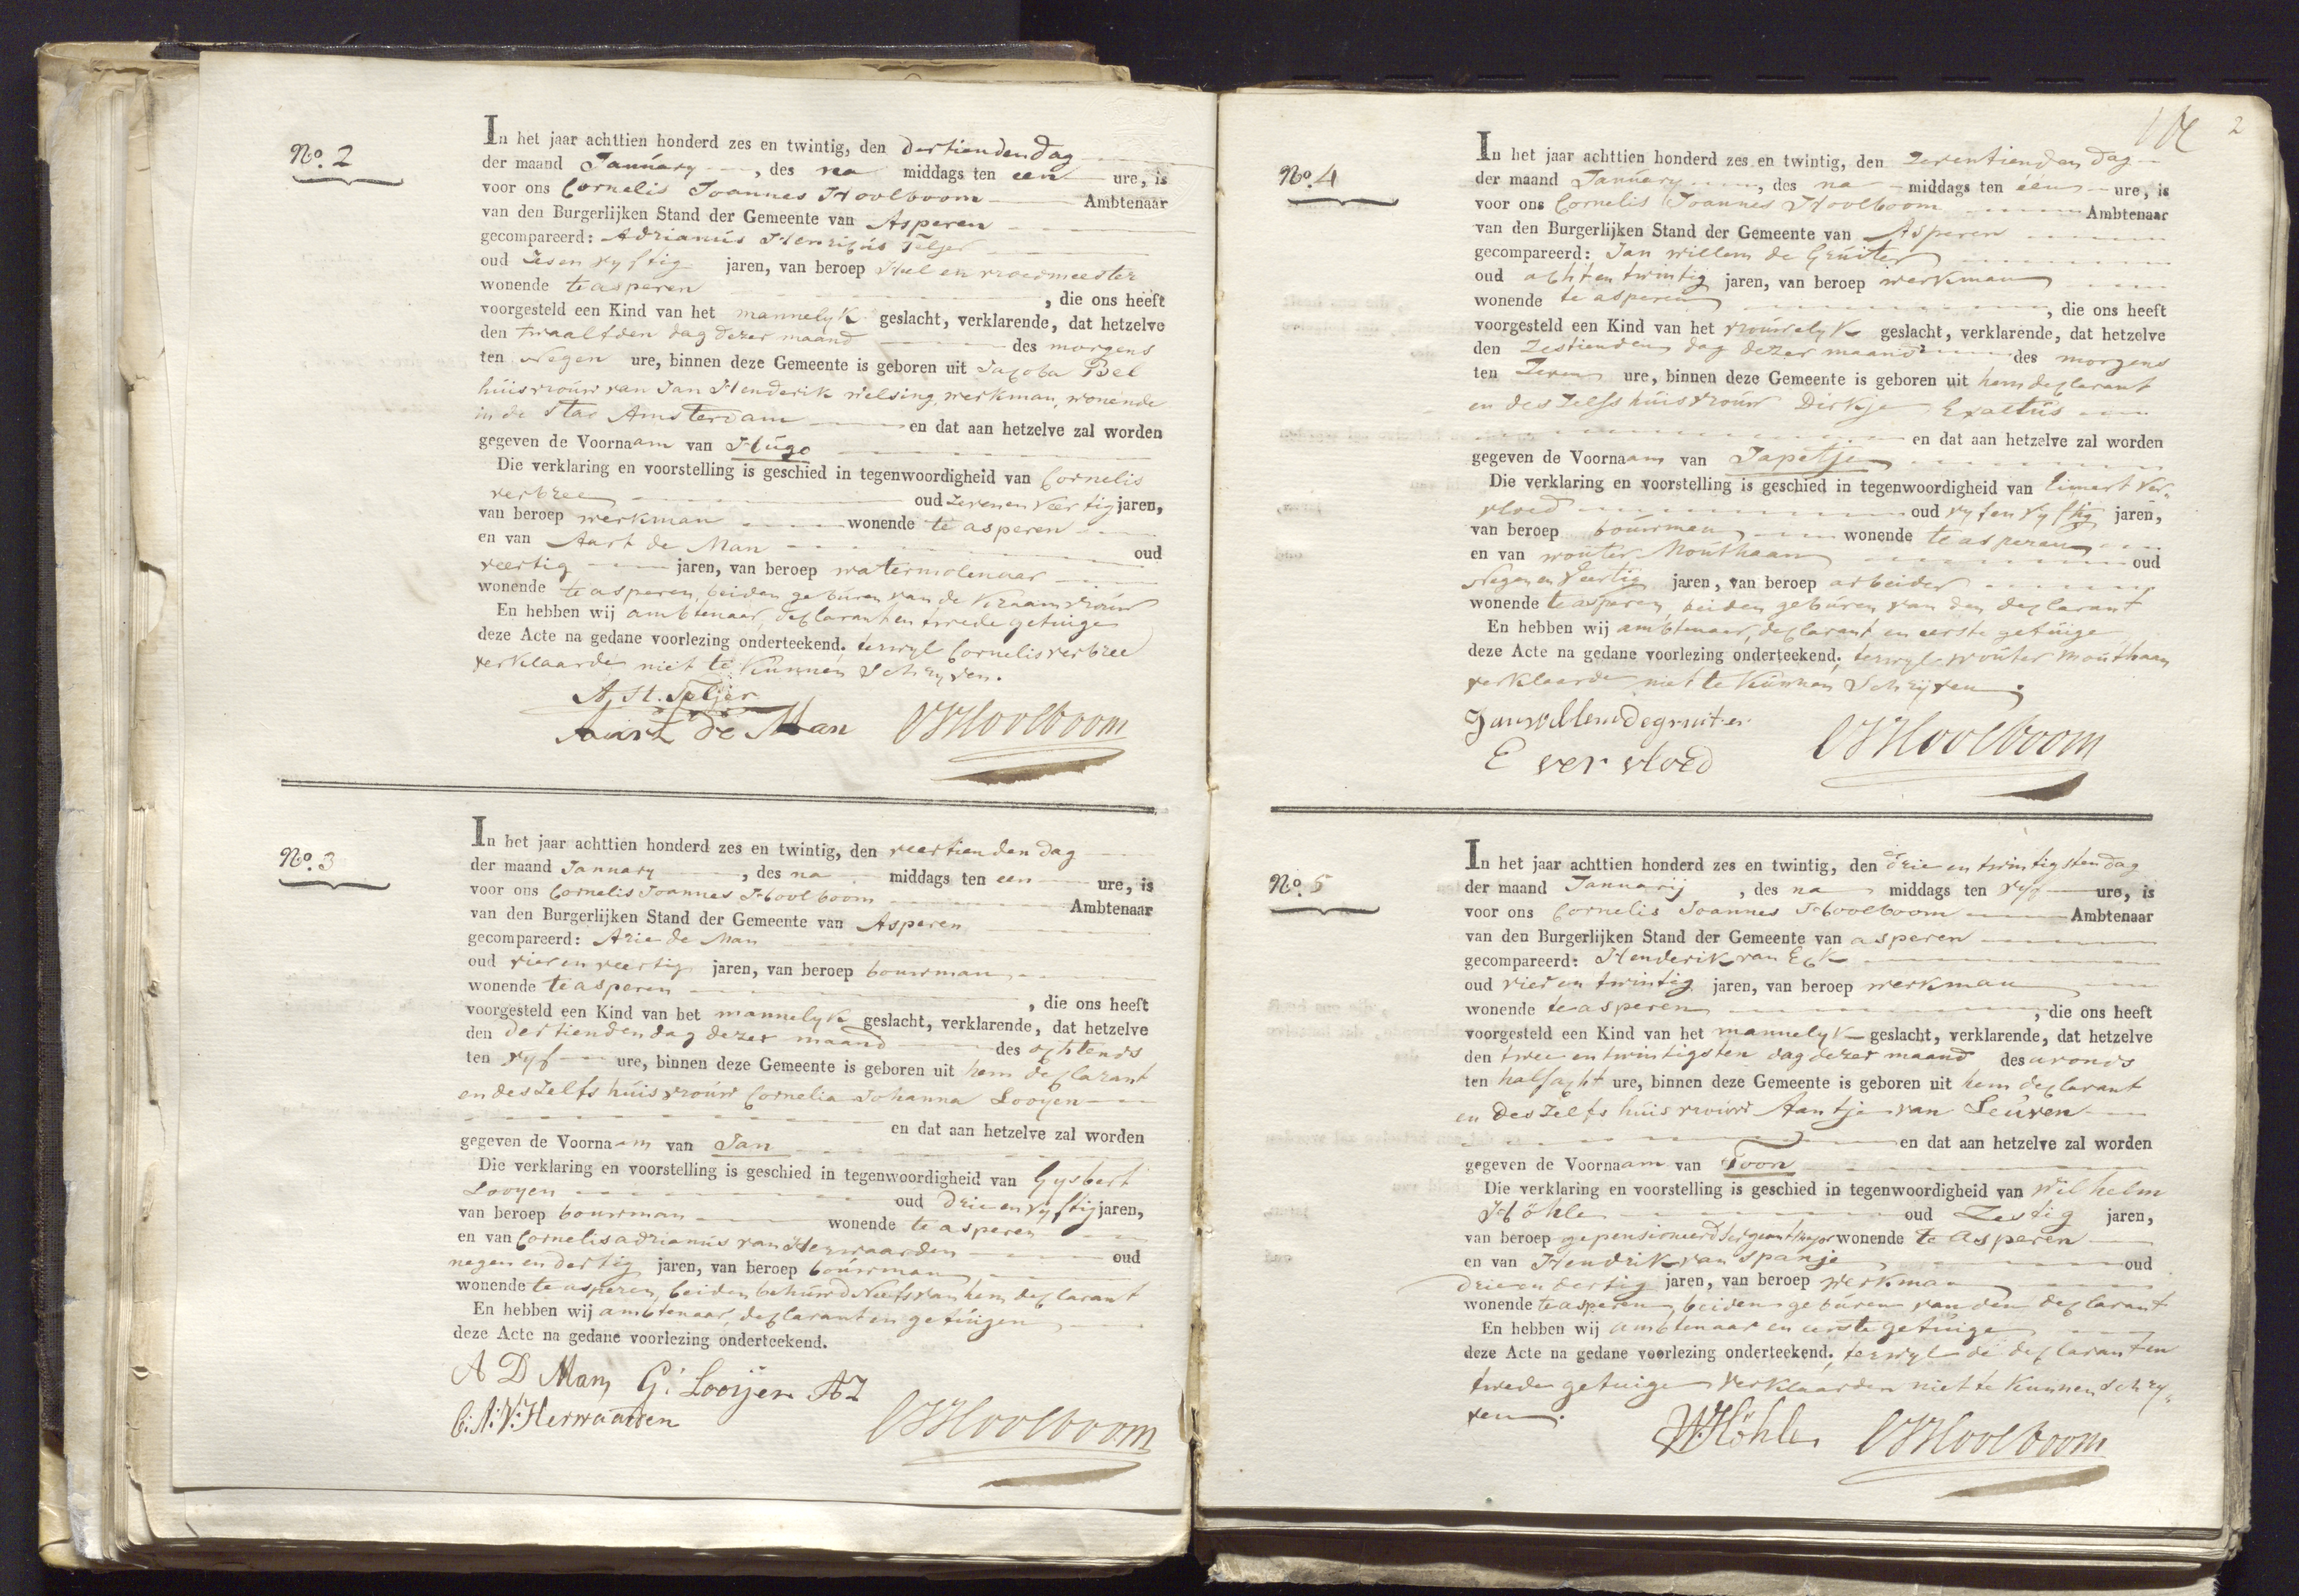 No. 2
In het jaar achttien honderd zes en twintig, den dertienden dag
der maand January, des na middags ten een ure, is
voor ons Cornelis Joannes Hoolboom Ambtenaar
van den Burgerlijken Stand der Gemeente van Asperen
gecompareerd: Adrianus Henricus Teljer
oud zes en vyftig jaren, van beroep Heel en vroedmeester
wonende te asperen, die ons heeft
voorgesteld een Kind van het mannelyk geslacht, verklarende, dat hetzelve
den twaalfden dag dezer maand des morgens
ten negen ure, binnen deze Gemeente is geboren uit Jacoba Bel
huisvrouw van Jan Henderik nelsing, werkman, wonende
in de Stad Amsterdam en dat aan hetzelve zal worden
gegeven de Voornaam van Hugo
Die verklaring en voorstelling is geschied in tegenwoordigheid van Cornelis
verbree oud zeven en veertig jaren,
van beroep werkman wonende te asperen
en van Aart de Man oud
veertig jaren, van beroep watermolenaar
wonende te asperen, beiden geburen van de Kraamvrouw
En hebben wij ambtenaar, declarant en twede getuige
deze Acte na gedane voorlezing onderteekend, terwyl Cornelis verbree
verklaarde niet te Kunnen Schryven.
A, H. Teljer
Aart de Man CJHoolboom
No. 3
In het jaar achttien honderd zes en twintig, den veertienden dag
der maand January, des na middags ten een ure, is
voor ons Cornelis Joannes Hoolboom Ambtenaar
van den Burgerlijken Stand der Gemeente van Asperen
gecompareerd: Arie de Man
oud vier en veertig jaren, van beroep bouwman
wonende te asperen, die ons heeft
voorgesteld een Kind van het mannelyk geslacht, verklarende, dat hetzelve
den dertienden dag dezer maand des ochtends
ten vyf ure, binnen deze Gemeente is geboren uit hem declarant
en deszelfs huisvrouw Cornelia Johanna Looyen
en dat aan hetzelve zal worden
gegeven de Voornaam van Jan
Die verklaring en voorstelling is geschied in tegenwoordigheid van Gysbert
Looyen oud drie en vyftig jaren,
van beroep bouwman wonende te asperen
en van Cornelis adrianus van Herwaarden oud
negen en dertig jaren, van beroep bouwman
wonende te asperen, beiden behuwd Neefs van hem declarant
En hebben wij ambtenaar, declarant en getuigen
deze Acte na gedane voorlezing onderteekend.
A D Man G: Looijen AZ
C: A: V: Herwaarden CJHoolboom
2
No. 4
In het jaar achttien honderd zes en twintig, den zeventienden dag
der maand January, des na middags ten één ure, is
voor ons Cornelis Joannes Hoolboom Ambtenaar
van den Burgerlijken Stand der Gemeente van Asperen
gecompareerd: Jan willem de Gruiter
oud acht en twintig jaren, van beroep werkman
wonende te asperen, die ons heeft
voorgesteld een Kind van het vrouwelyk geslacht, verklarende, dat hetzelve
den zestienden dag dezer maand des morgens
ten zeven ure, binnen deze Gemeente is geboren uit hem declarant
en deszelfs huisvrouw Dirkje Exaltus
en dat aan hetzelve zal worden
gegeven de Voornaam van Japetje
Die verklaring en voorstelling is geschied in tegenwoordigheid van Ver-
vloed oud vyf en vyftig jaren,
van beroep bouwman wonende te asperen
en van wouter Mouthaan oud
negen en veertig jaren, van beroep arbeider
wonende te asperen, beiden geburen van den declarant
En hebben wij ambtenaar, declarant en eerste getuige
deze Acte na gedane voorlezing onderteekend, terwyl wouter mouthaan
verklaarde niet te Kunnen Schryven.
Janwillemdegruiter
E ver vloed CJHoolboom
No. 5
In het jaar achttien honderd zes en twintig, den drie en twintigsten dag
der maand Januarij, des na middags ten vyf ure, is
voor ons Cornelis Joannes Hoolboom Ambtenaar
van den Burgerlijken Stand der Gemeente van asperen
gecompareerd: Henderik van Eck
oud vier en twintig jaren, van beroep werkman
wonende te asperen, die ons heeft
voorgesteld een Kind van het mannelyk geslacht, verklarende, dat hetzelve
den twee en twintigsten dag dezer maand des avonds
ten half acht ure, binnen deze Gemeente is geboren uit hem declarant
en deszelfs huisvrouw Aantje van Leuven
en dat aan hetzelve zal worden
gegeven de Voornaam van Toon
Die verklaring en voorstelling is geschied in tegenwoordigheid van Wilhelm
Höhle oud Zestig jaren,
van beroep gepensioneerd sergeant major wonende te Asperen
en van Hendrik van Spanje oud
drie en dertig jaren, van beroep werkman
wonende te asperen, beiden geburen van den declarant
En hebben wij ambtenaar en eerste getuige
deze Acte na gedane voorlezing onderteekend, terwyl de declarant en
twede getuige verklaarden niet te Kunnen schry-
ven.
W:Höhle CJHoolboom